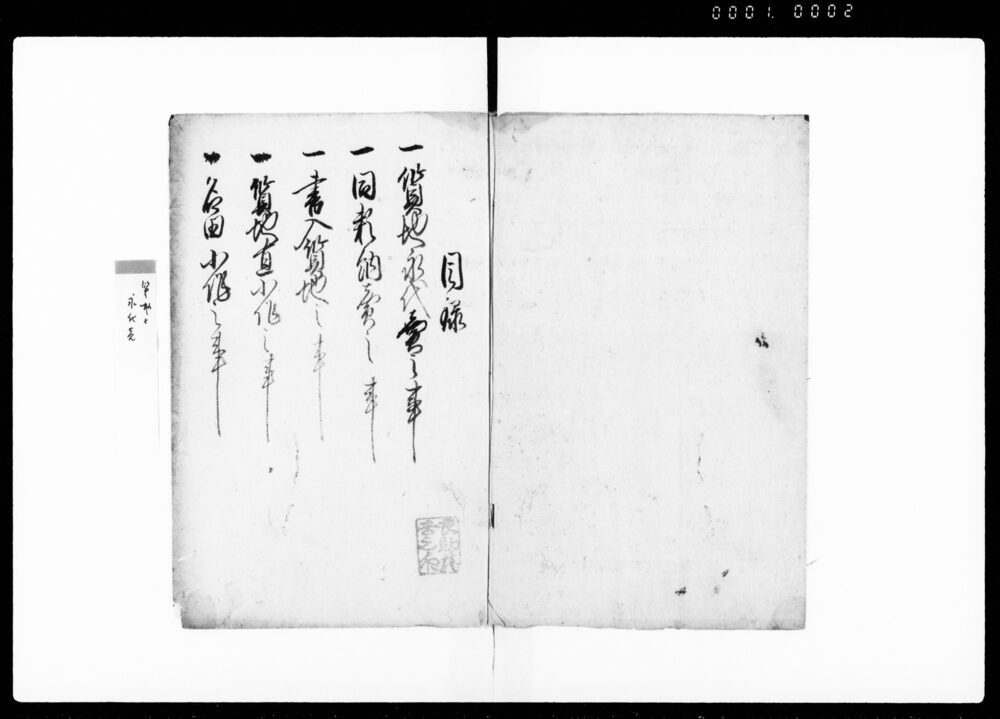 0001 0002
目録
一質地永代賣之事
一同頼納賣之事
一書入質地之事
一質地直小作之事
一名田小作之事
永代売